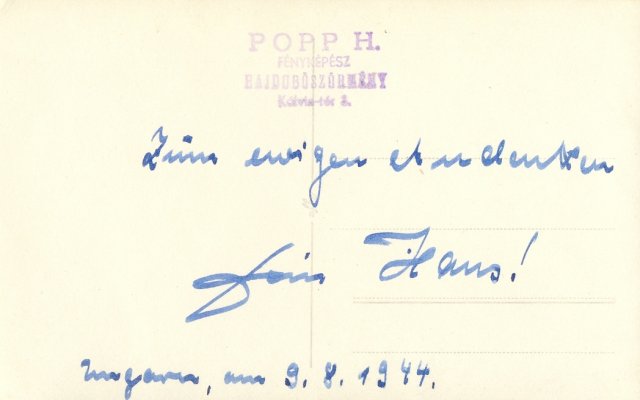 POPP H.
FÉNYKÉPÉSZ
HAJDUBÖSZÖRMÉNY
Kálvin-tér 3.
Zum ewigen Andenken
Dein Hans!
Ungarn, am 9. 8. 1944.